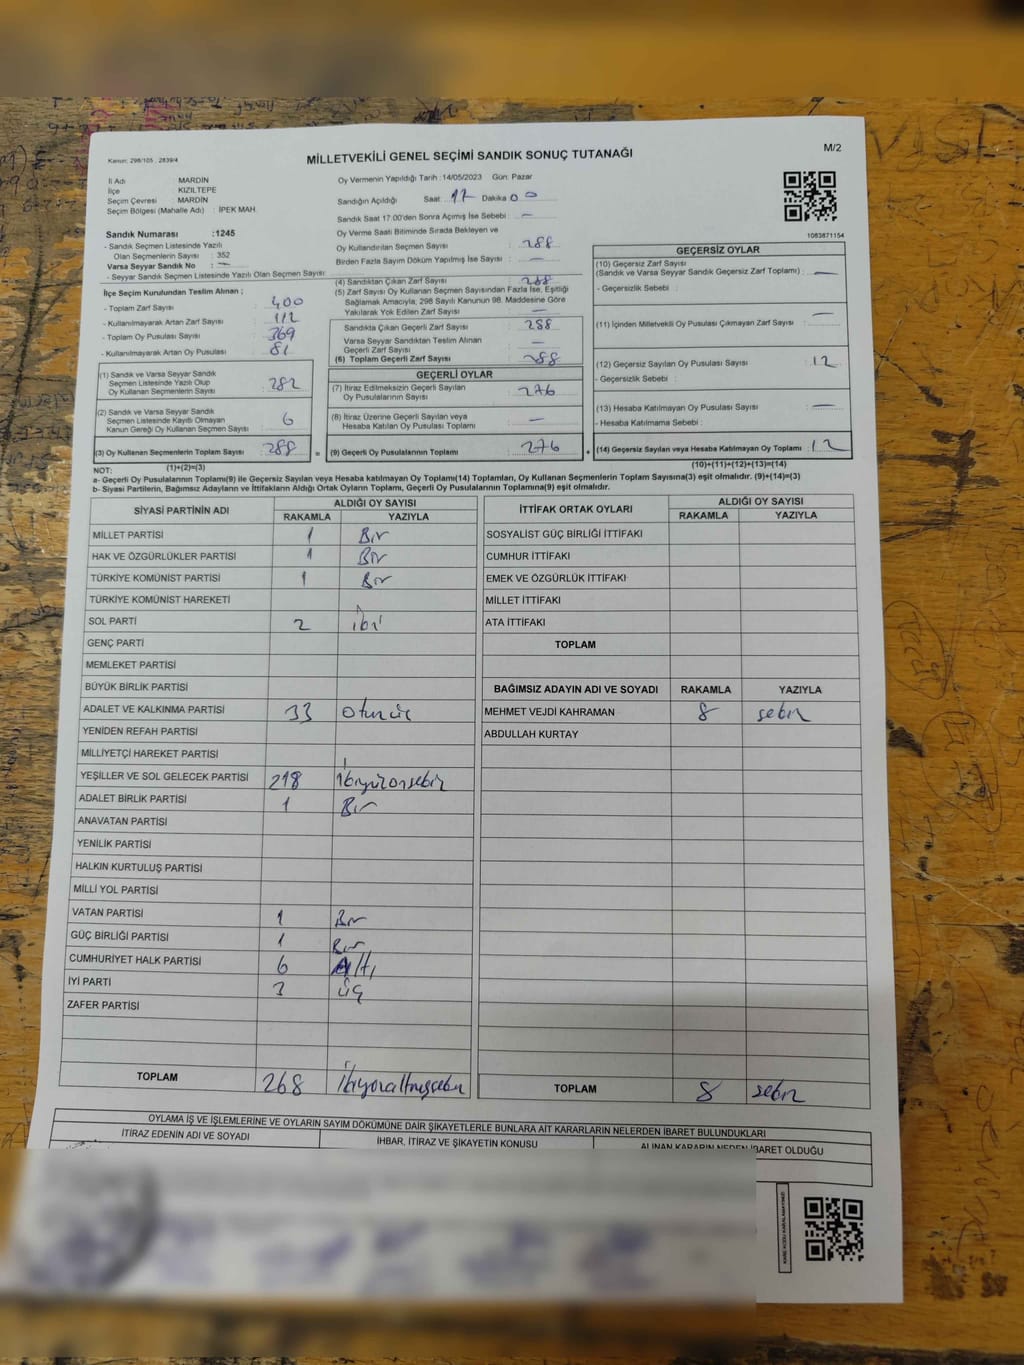 M/2
Kanun: 298/105 , 2839/4
MİLLETVEKİLİ GENEL SEÇİMİ SANDIK SONUÇ TUTANAĞI
İl Adı : MARDİN
İlçe : KIZILTEPE
Seçim Çevresi : MARDİN
Seçim Bölgesi (Mahalle Adı) : İPEK MAH.
Oy Vermenin Yapıldığı Tarih :14/05/2023 Gün: Pazar
Sandığın Açıldığı Saat 17 Dakika 00
Sandık Saat 17.00'den Sonra Açımış İse Sebebi : —
Oy Verme Saati Bitiminde Sırada Bekleyen ve
Oy Kullandırılan Seçmen Sayısı : 288
Birden Fazla Sayım Döküm Yapılmış İse Sayısı : —
1083871154
Sandık Numarası :1245
- Sandık Seçmen Listesinde Yazılı
Olan Seçmenlerin Sayısı : 352
Varsa Seyyar Sandık No : —
- Seyyar Sandık Seçmen Listesinde Yazılı Olan Seçmen Sayısı:
İlçe Seçim Kurulundan Teslim Alınan ;
- Toplam Zarf Sayısı : 400
- Kullanılmayarak Artan Zarf Sayısı : 112
- Toplam Oy Pusulası Sayısı : 369
- Kullanılmayarak Artan Oy Pusulası : 81
(1) Sandık ve Varsa Seyyar Sandık
Seçmen Listesinde Yazılı Olup
Oy Kullanan Seçmenlerin Sayısı : 282
(2) Sandık ve Varsa Seyyar Sandık
Seçmen Listesinde Kayıtlı Olmayan
Kanun Gereği Oy Kullanan Seçmen Sayısı : 6
(3) Oy Kullanan Seçmenlerin Toplam Sayısı : 288
(1)+(2)=(3)
(4) Sandıktan Çıkan Zarf Sayısı : 288
(5) Zarf Sayısı Oy Kullanan Seçmen Sayısından Fazla İse, Eşitliği
Sağlamak Amacıyla, 298 Sayılı Kanunun 98. Maddesine Göre
Yakılarak Yok Edilen Zarf Sayısı : —
Sandıkta Çıkan Geçerli Zarf Sayısı : 288
Varsa Seyyar Sandıktan Teslim Alınan
Geçerli Zarf Sayısı : —
(6) Toplam Geçerli Zarf Sayısı : 288
GEÇERLİ OYLAR
(7) İtiraz Edilmeksizin Geçerli Sayılan
Oy Pusulalarının Sayısı : 276
(8) İtiraz Üzerine Geçerli Sayılan veya
Hesaba Katılan Oy Pusulası Toplamı : —
= (9) Geçerli Oy Pusulalarının Toplamı : 276
GEÇERSİZ OYLAR
(10) Geçersiz Zarf Sayısı
(Sandık ve Varsa Seyyar Sandık Geçersiz Zarf Toplamı) : —
- Geçersizlik Sebebi :
(11) İçinden Milletvekili Oy Pusulası Çıkmayan Zarf Sayısı : —
(12) Geçersiz Sayılan Oy Pusulası Sayısı : 12
- Geçersizlik Sebebi :
(13) Hesaba Katılmayan Oy Pusulası Sayısı : —
- Hesaba Katılmama Sebebi :
+ (14) Geçersiz Sayılan veya Hesaba Katılmayan Oy Toplamı : 12
(10)+(11)+(12)+(13)=(14)
NOT:
a- Geçerli Oy Pusulalarının Toplamı(9) ile Geçersiz Sayılan veya Hesaba katılmayan Oy Toplamı(14) Toplamları, Oy Kullanan Seçmenlerin Toplam Sayısına(3) eşit olmalıdır. (9)+(14)=(3)
b- Siyasi Partilerin, Bağımsız Adayların ve İttifakların Aldığı Ortak Oyların Toplamı, Geçerli Oy Pusulalarının Toplamına(9) eşit olmalıdır.
SİYASİ PARTİNİN ADI ALDIĞI OY SAYISI
RAKAMLA YAZIYLA
MİLLET PARTİSİ 1 Bir
HAK VE ÖZGÜRLÜKLER PARTİSİ 1 Bir
TÜRKİYE KOMÜNİST PARTİSİ 1 Bir
TÜRKİYE KOMÜNİST HAREKETİ
SOL PARTİ 2 iki
GENÇ PARTİ
MEMLEKET PARTİSİ
BÜYÜK BİRLİK PARTİSİ
ADALET VE KALKINMA PARTİSİ 33 otuzüç
YENİDEN REFAH PARTİSİ
MİLLİYETÇİ HAREKET PARTİSİ
YEŞİLLER VE SOL GELECEK PARTİSİ 218 ikiyüzonsekiz
ADALET BİRLİK PARTİSİ 1 Bir
ANAVATAN PARTİSİ
YENİLİK PARTİSİ
HALKIN KURTULUŞ PARTİSİ
MİLLİ YOL PARTİSİ
VATAN PARTİSİ 1 Bir
GÜÇ BİRLİĞİ PARTİSİ 1 Bir
CUMHURİYET HALK PARTİSİ 6 Altı
İYİ PARTİ 3 üç
ZAFER PARTİSİ
TOPLAM 268 ikiyüzaltmışsekiz
İTTİFAK ORTAK OYLARI ALDIĞI OY SAYISI
RAKAMLA YAZIYLA
SOSYALİST GÜÇ BİRLİĞİ İTTİFAKI
CUMHUR İTTİFAKI
EMEK VE ÖZGÜRLÜK İTTİFAKI
MİLLET İTTİFAKI
ATA İTTİFAKI
TOPLAM
BAĞIMSIZ ADAYIN ADI VE SOYADI RAKAMLA YAZIYLA
MEHMET VEJDİ KAHRAMAN 8 sekiz
ABDULLAH KURTAY
TOPLAM 8 sekiz
OYLAMA İŞ VE İŞLEMLERİNE VE OYLARIN SAYIM DÖKÜMÜNE DAİR ŞİKAYETLERLE BUNLARA AİT KARARLARIN NELERDEN İBARET BULUNDUKLARI
İTİRAZ EDENİN ADI VE SOYADI İHBAR, İTİRAZ VE ŞİKAYETİN KONUSU ALINAN KARARIN NEDEN İBARET OLDUĞU
KARE KODU KARALAMAYINIZ!